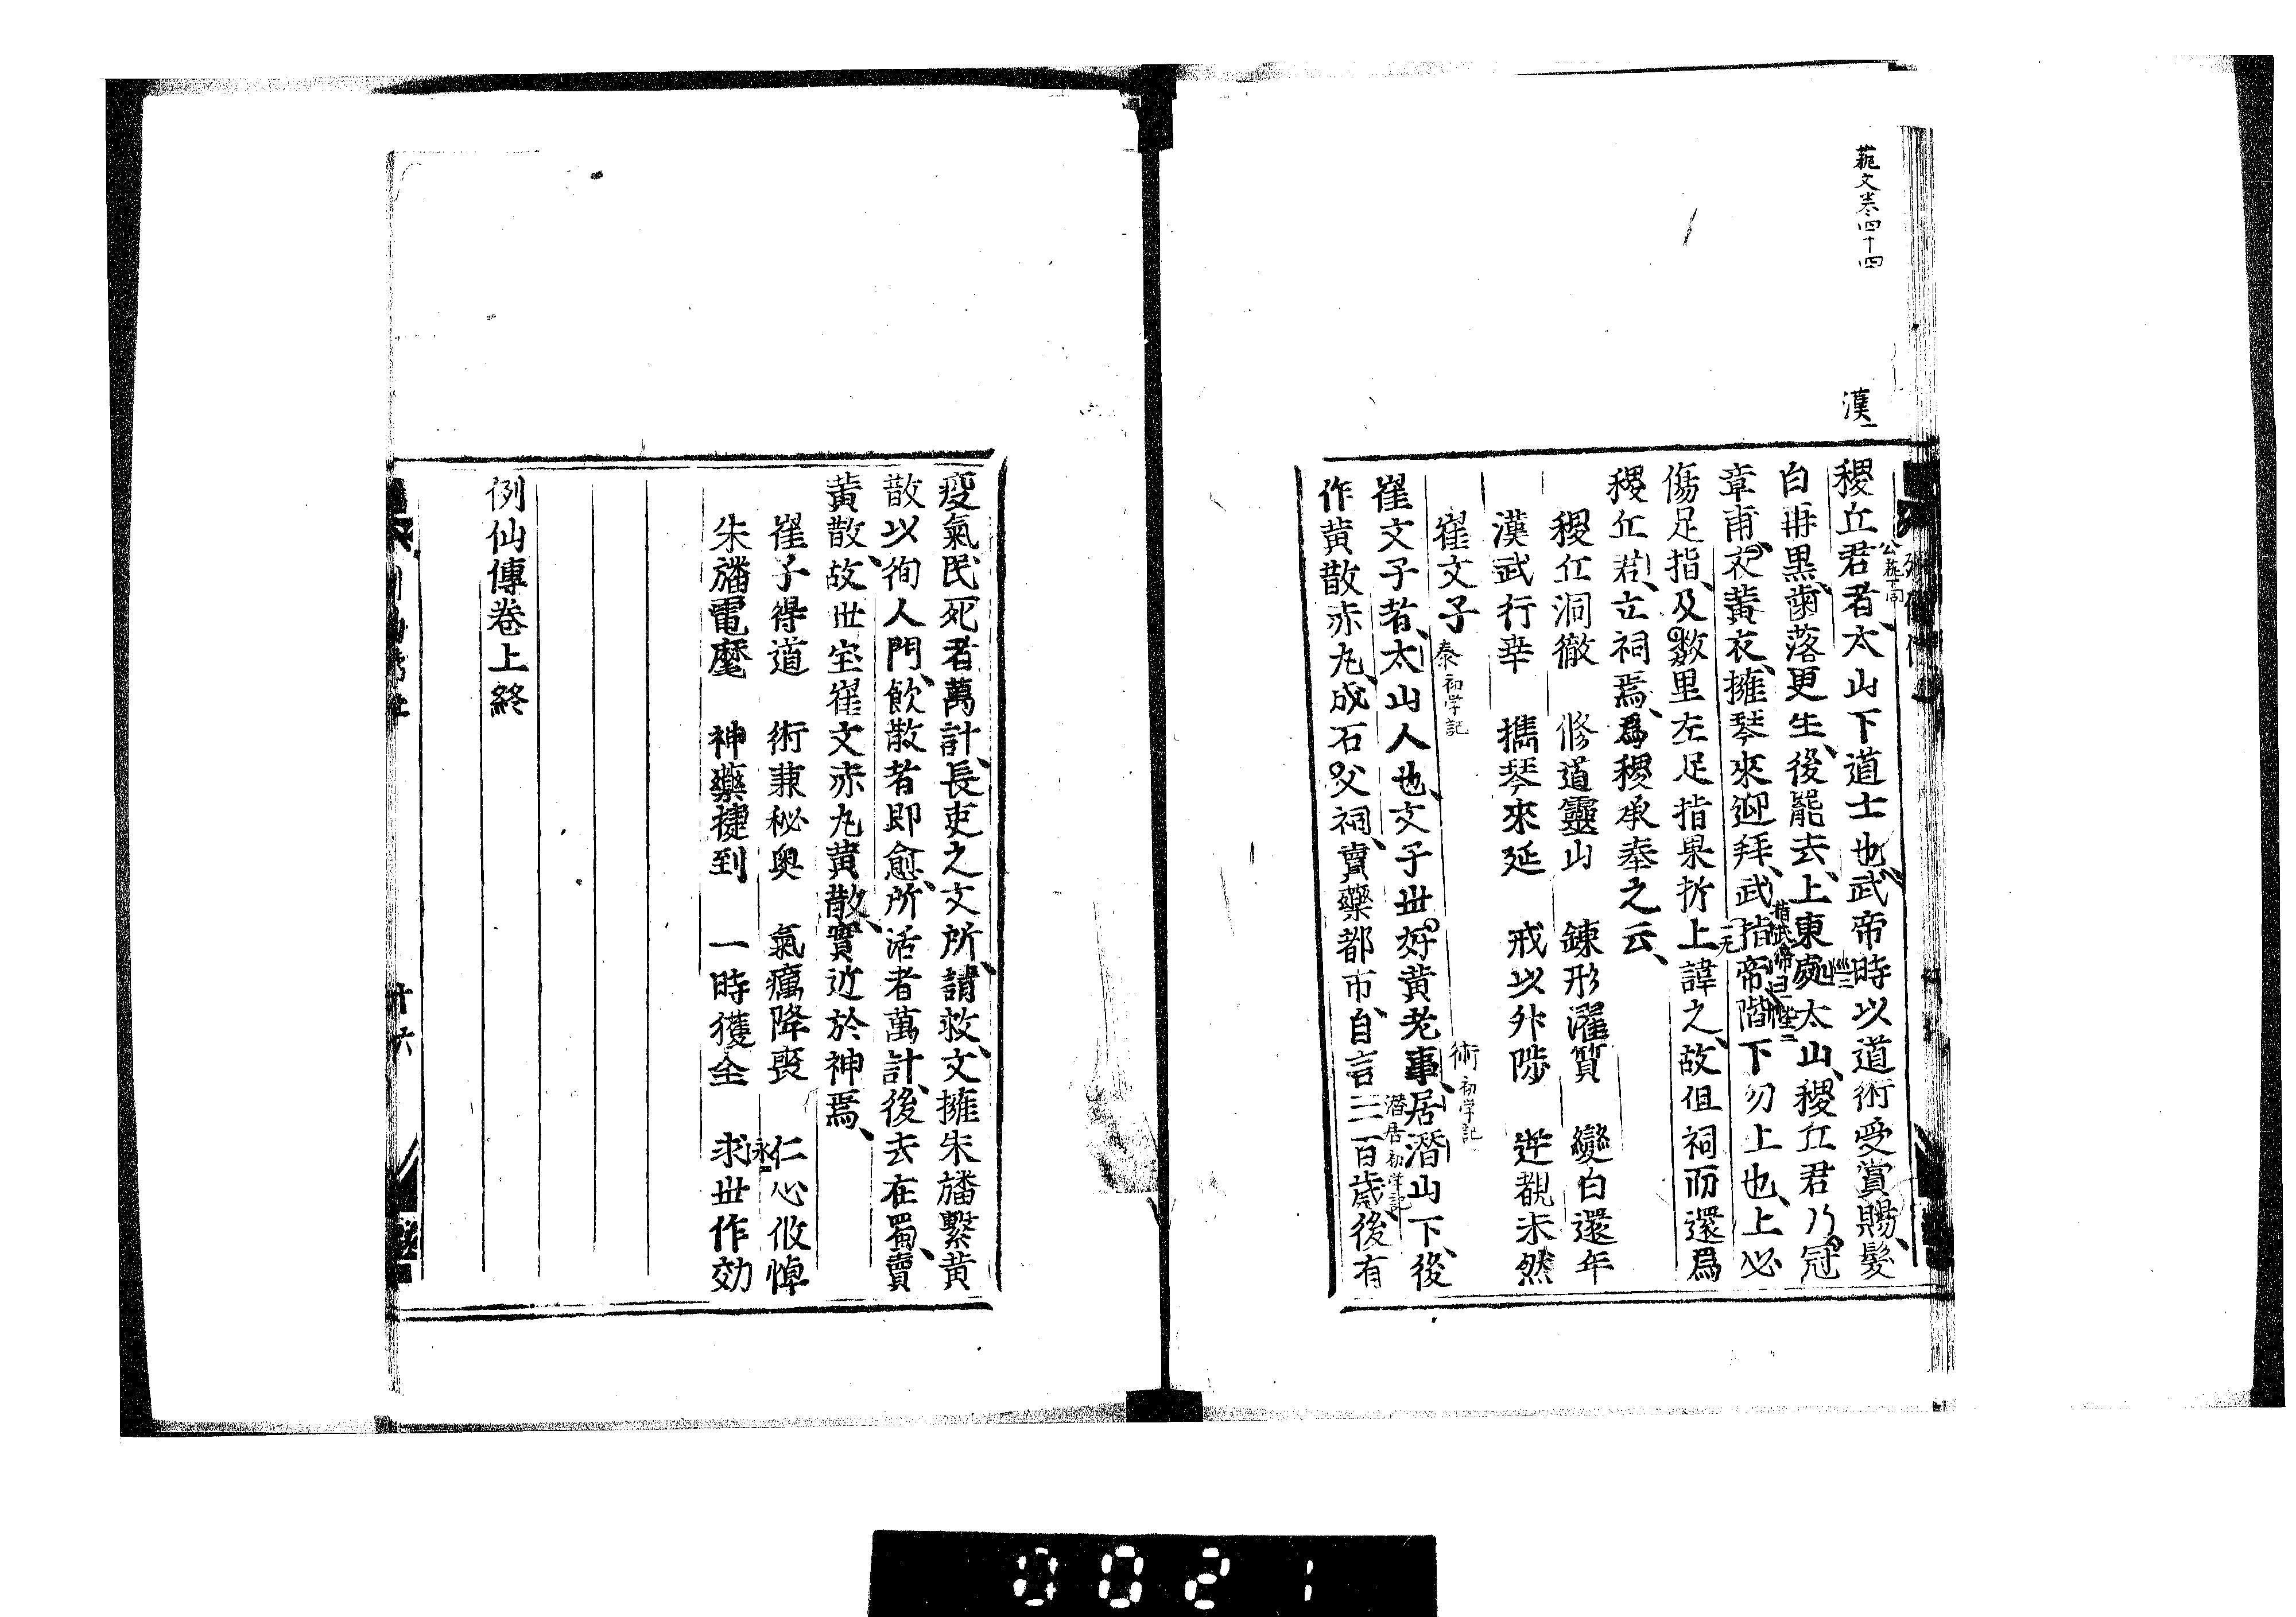 藝文卷四十四
漢一
公藝下同
稷丘君者太山下道士也武帝時以道術受賞賜髮
白再黒歯落更生後罷去上東處太山稷丘君乃冠
章甫衣黄衣擁琴來迎拜武指帝階下勿上也上必
傷足指及數里左足指果折上諱之故但祠而還爲
稷丘君立祠焉爲稷承奉之云
稷丘洞徹　修道靈山　錬形濯質　變白還年
漢武行幸　攜琴來延　戒以外陟　逆覩未然
崔文子
泰初学記
術初学記
崔文子者太山人也文子世好黄老事居潛山下後
潜居初学記
作黄散赤丸成石父祠賣藥都市自言三百歳後有
疫氣民死者萬計長吏之文所請救文擁朱旛繫黄
散以徇人門飲散者即愈所活者萬計後去在蜀賣
黄散故世宝崔文赤丸黄散實近於神焉
崔子得道　術兼秘奥　氣癘降喪　仁心攸悼
朱旛電麾　神藥捷到　一時獲全　求世作効
永
例仙傳卷上終
十六
0021